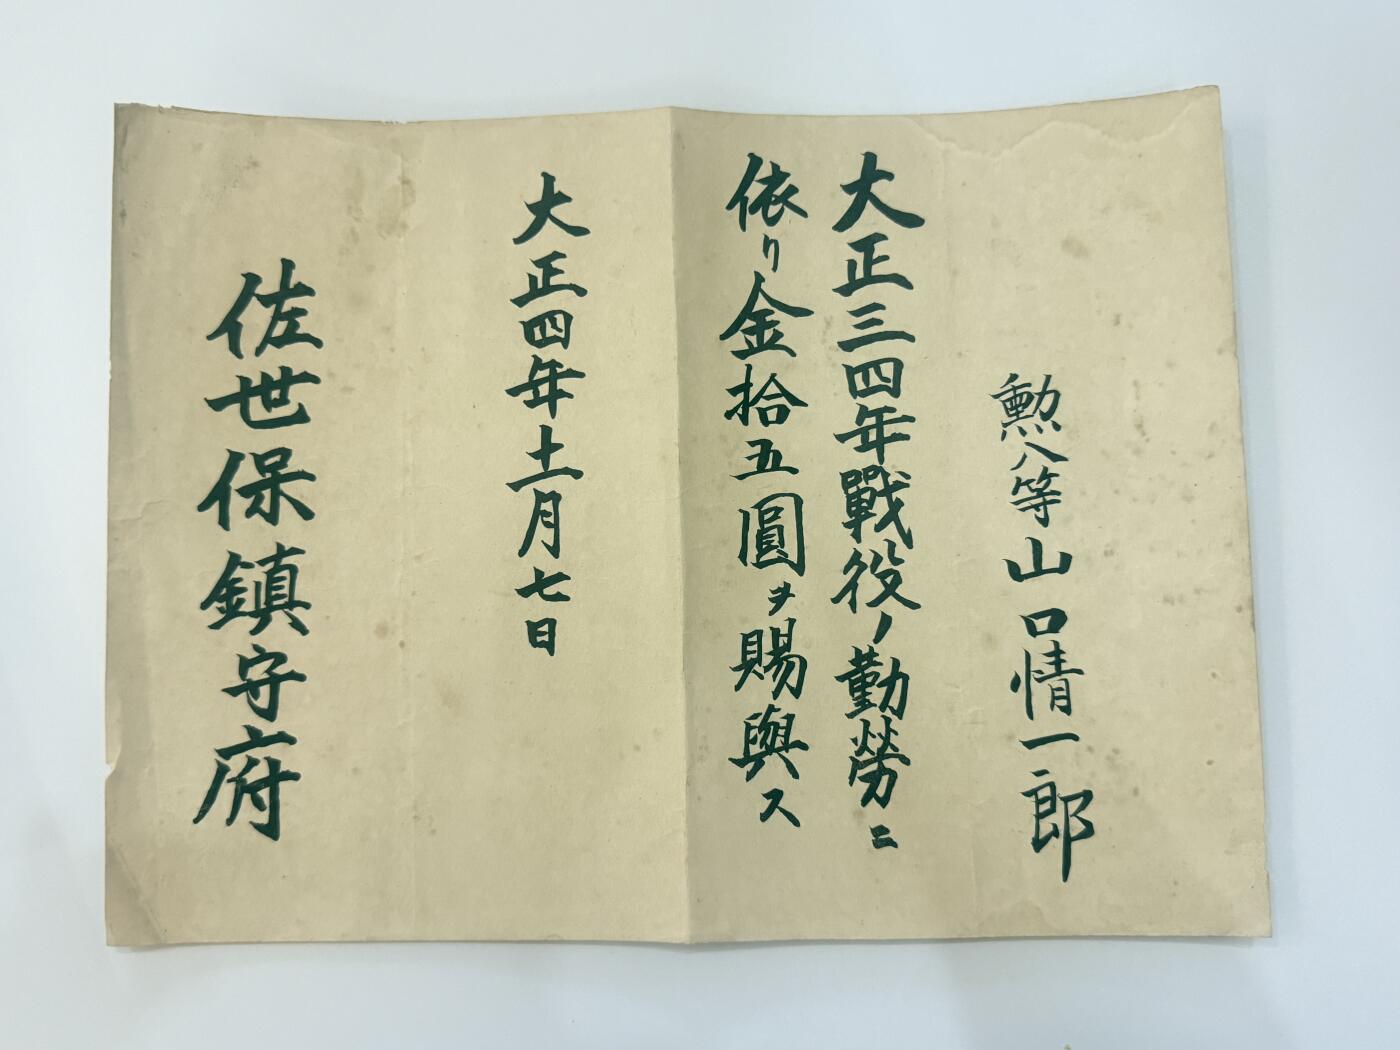 勲八等山口情一郎
大正三四年戰役ノ勤勞ニ
依リ金拾五圓ヲ賜與ス
大正四年十一月七日
佐世保鎮守府